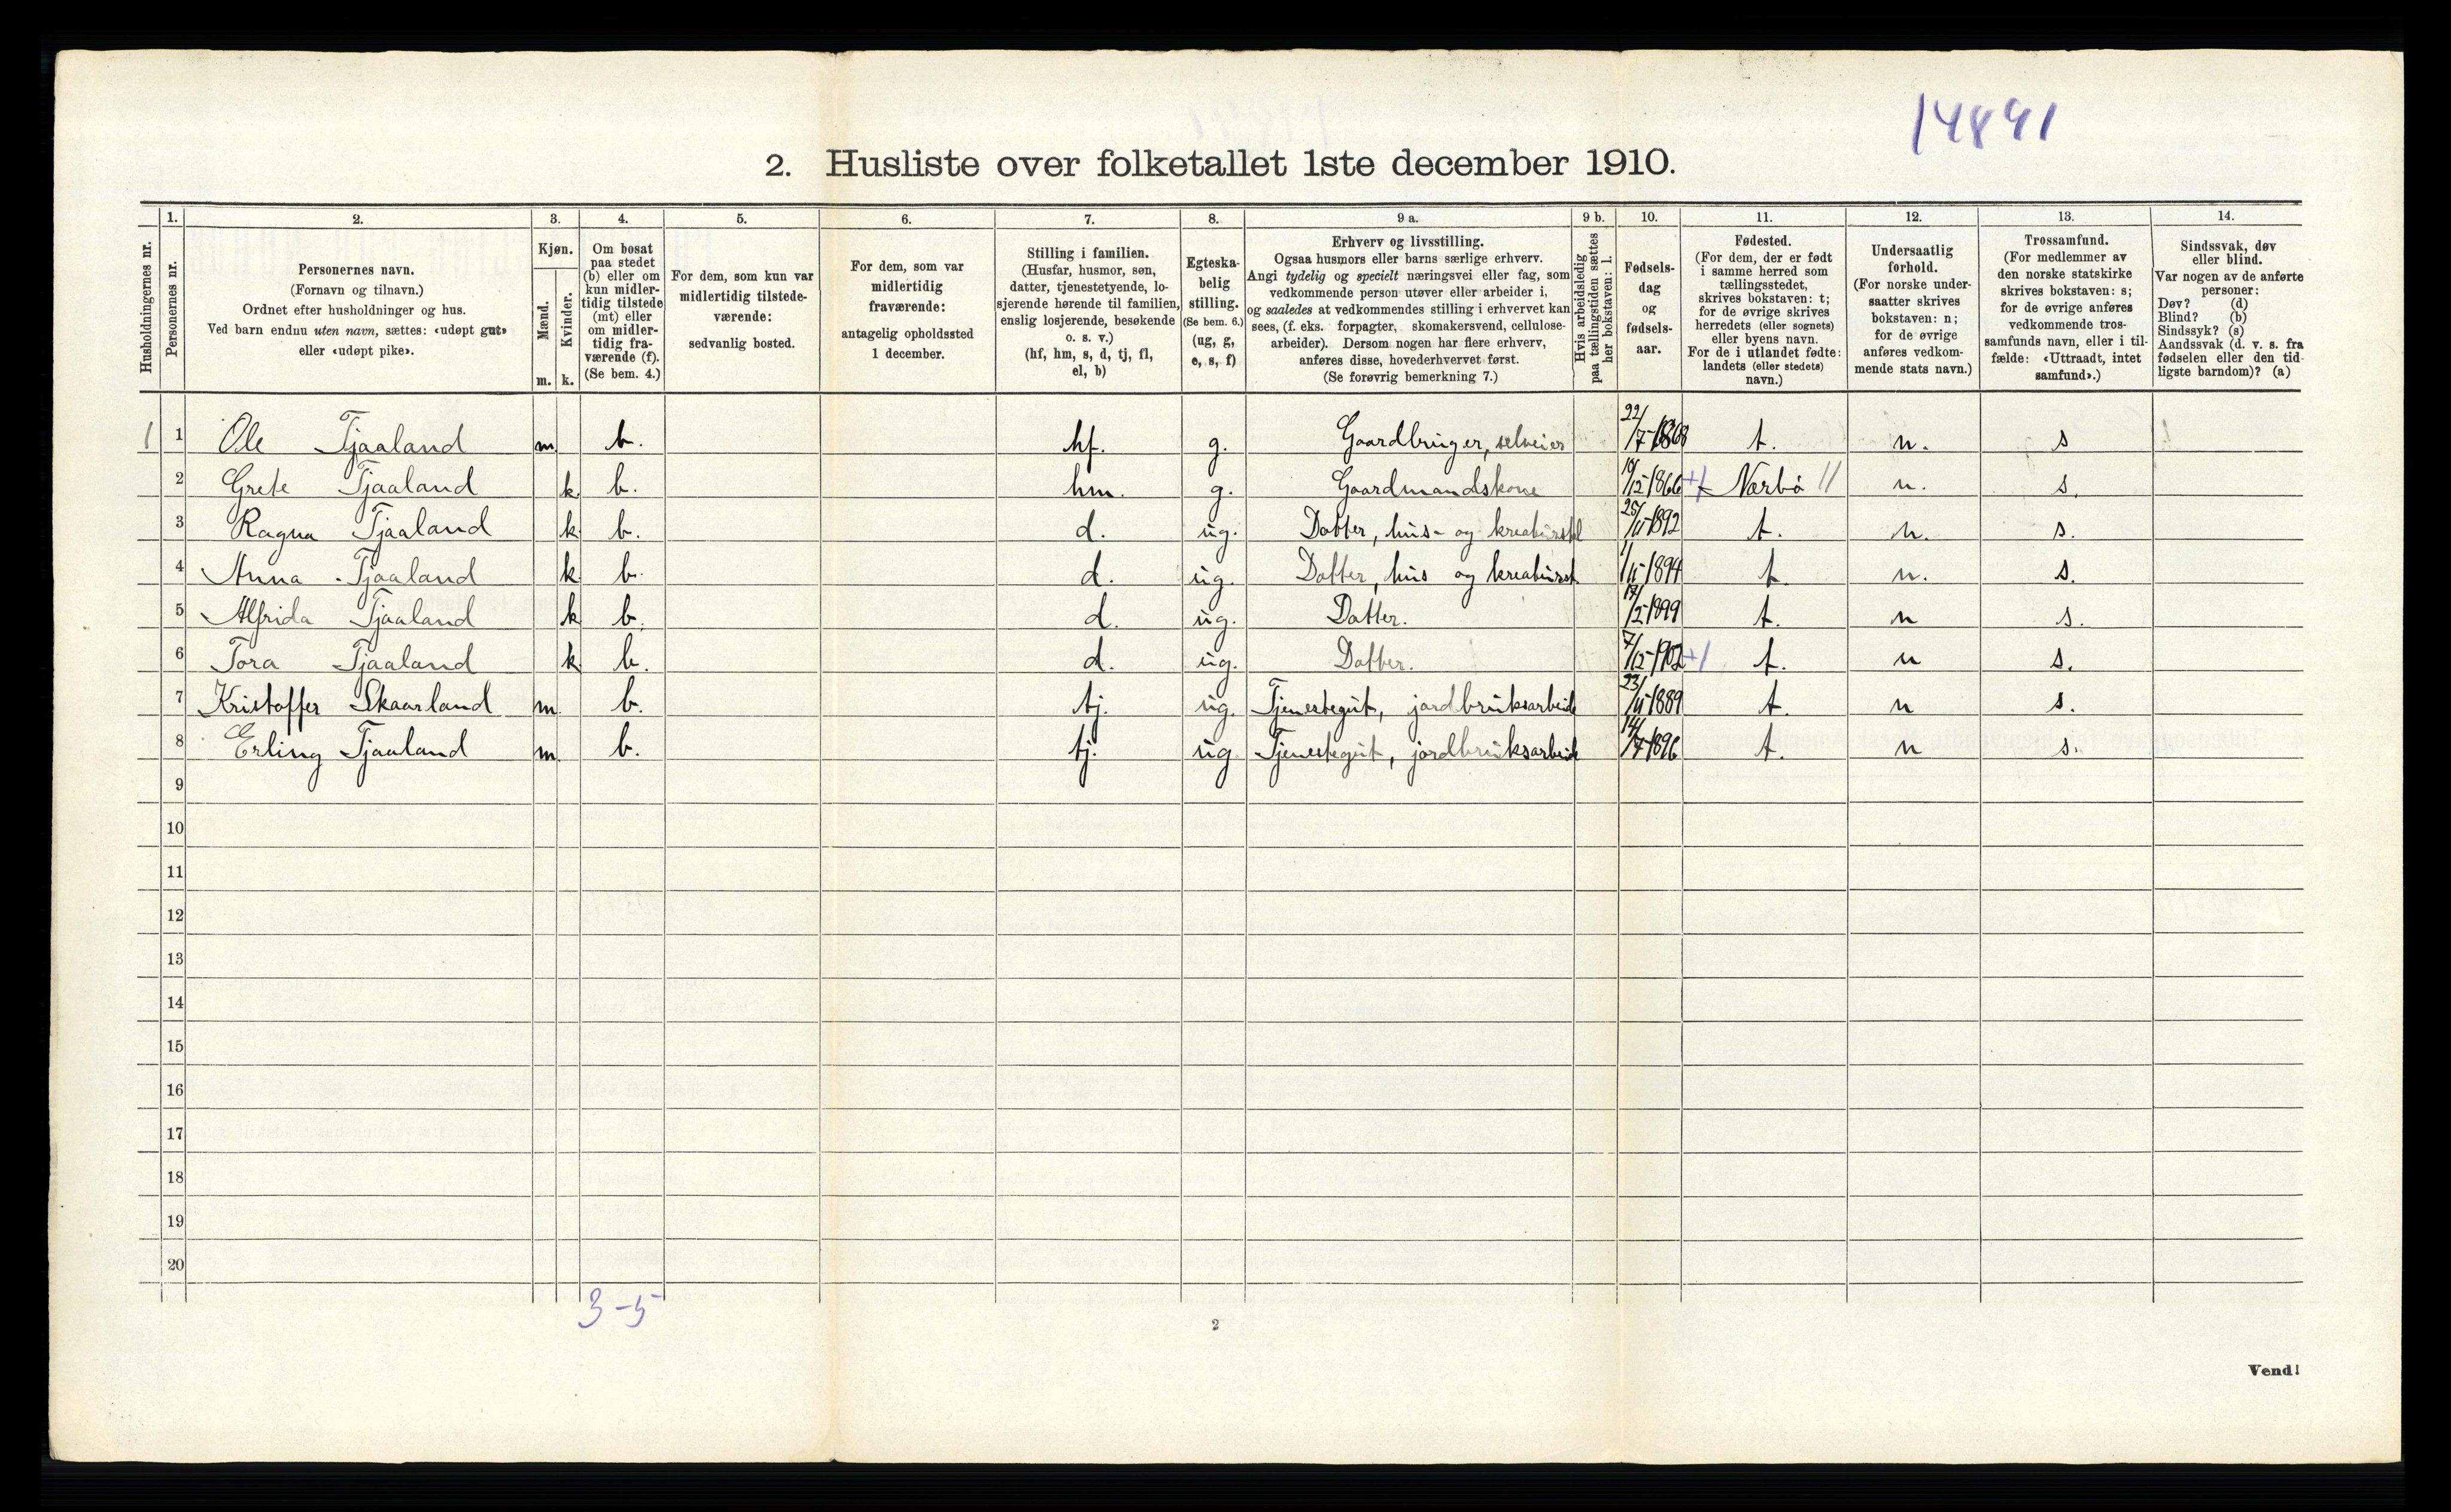 14891
2. Husliste over folketallet 1ste december 1910.
Husholdningernes nr.
1.
Personernes nr.
2.
Personernes navn.
(Fornavn og tilnavn.)
Ordnet efter husholdninger og hus.
Ved barn endnu uten navn, sættes: «udøpt gut»
eller «udøpt pike».
3.
Kjøn.
Mænd.
Kvinder.
m. k.
4.
Om bosat
paa stedet
(b) eller om
kun midler-
tidig tilstede
(mt) eller
om midler-
tidig fra-
værende (f).
(Se bem. 4.)
5.
For dem, som kun var
midlertidig tilstede-
værende:
sedvanlig bosted.
6.
For dem, som var
midlertidig
fraværende:
antagelig opholdssted
1 december.
7.
Stilling i familien.
(Husfar, husmor, søn,
datter, tjenestetyende, lo-
sjerende hørende til familien,
enslig losjerende, besøkende
o. s. v.)
(hf, hm, s, d, tj, fl,
el, b)
8.
Egteska-
belig
stilling.
(Se bem. 6.)
(ug, g,
e, s, f)
9 a.
Erhverv og livsstilling.
Ogsaa husmors eller barns særlige erhverv.
Angi tydelig og specielt næringsvei eller fag, som
vedkommende person utøver eller arbeider i,
og saaledes at vedkommendes stilling i erhvervet kan
sees, (f. eks. forpagter, skomakersvend, cellulose-
arbeider). Dersom nogen har flere erhverv,
anføres disse, hovederhvervet først.
(Se forøvrig bemerkning 7.)
9 b.
Hvis arbeidsledig
paa tællingstiden sættes
her bokstaven: l.
10.
Fødsels-
dag
og
fødsels-
aar.
11.
Fødested.
(For dem, der er født
i samme herred som
tællingsstedet,
skrives bokstaven: t;
for de øvrige skrives
herredets (eller sognets)
eller byens navn.
For de i utlandet fødte:
landets (eller stedets)
navn.)
12.
Undersaatlig
forhold.
(For norske under-
saatter skrives
bokstaven: n;
for de øvrige
anføres vedkom-
mende stats navn.)
13.
Trossamfund.
(For medlemmer av
den norske statskirke
skrives bokstaven: s;
for de øvrige anføres
vedkommende tros-
samfunds navn, eller i til-
fælde: «Uttraadt, intet
samfund».)
14.
Sindssvak, døv
eller blind.
Var nogen av de anførte
personer:
Døv? (d)
Blind? (b)
Sindssyk? (s)
Aandssvak (d. v. s. fra
fødselen eller den tid-
ligste barndom)? (a)
1 1 Ole Tjaaland m. b. hf. g. Gaardbruger, selveier 22/7-1868 t. n. s
2 Grete Tjaaland k b. hm. g. Gaardmandskone 12-1866 Nærbø 11 n. s.
3 Ragna Tjaaland k b. d. ug. Datter, hus- og kreaturstel 25/11-1892 t. n. s.
4 Anna Tjaaland k b. d. ug. Datter, hus og kreaturst 1/11-1894 t. n. s.
5 Alfrida Tjaaland k b. d. ug. Datter. 17/2-1899 t. n s.
6 Tora Tjaaland k b. d. ug. Datter. 7/12-1902 +1 t. n s.
7 Kristoffer Skaarland m. b. tj. ug. Tjenestegut, jordbruksarbeide 23/11-1889 t. n s.
8 Erling Tjaaland m. b. tj. ug. Tjenestegut, jordbruksarbeide 14/7-1896 t. n s.
9
10
11
12
13
14
15
16
17
18
19
20
3-5
2
Vend!